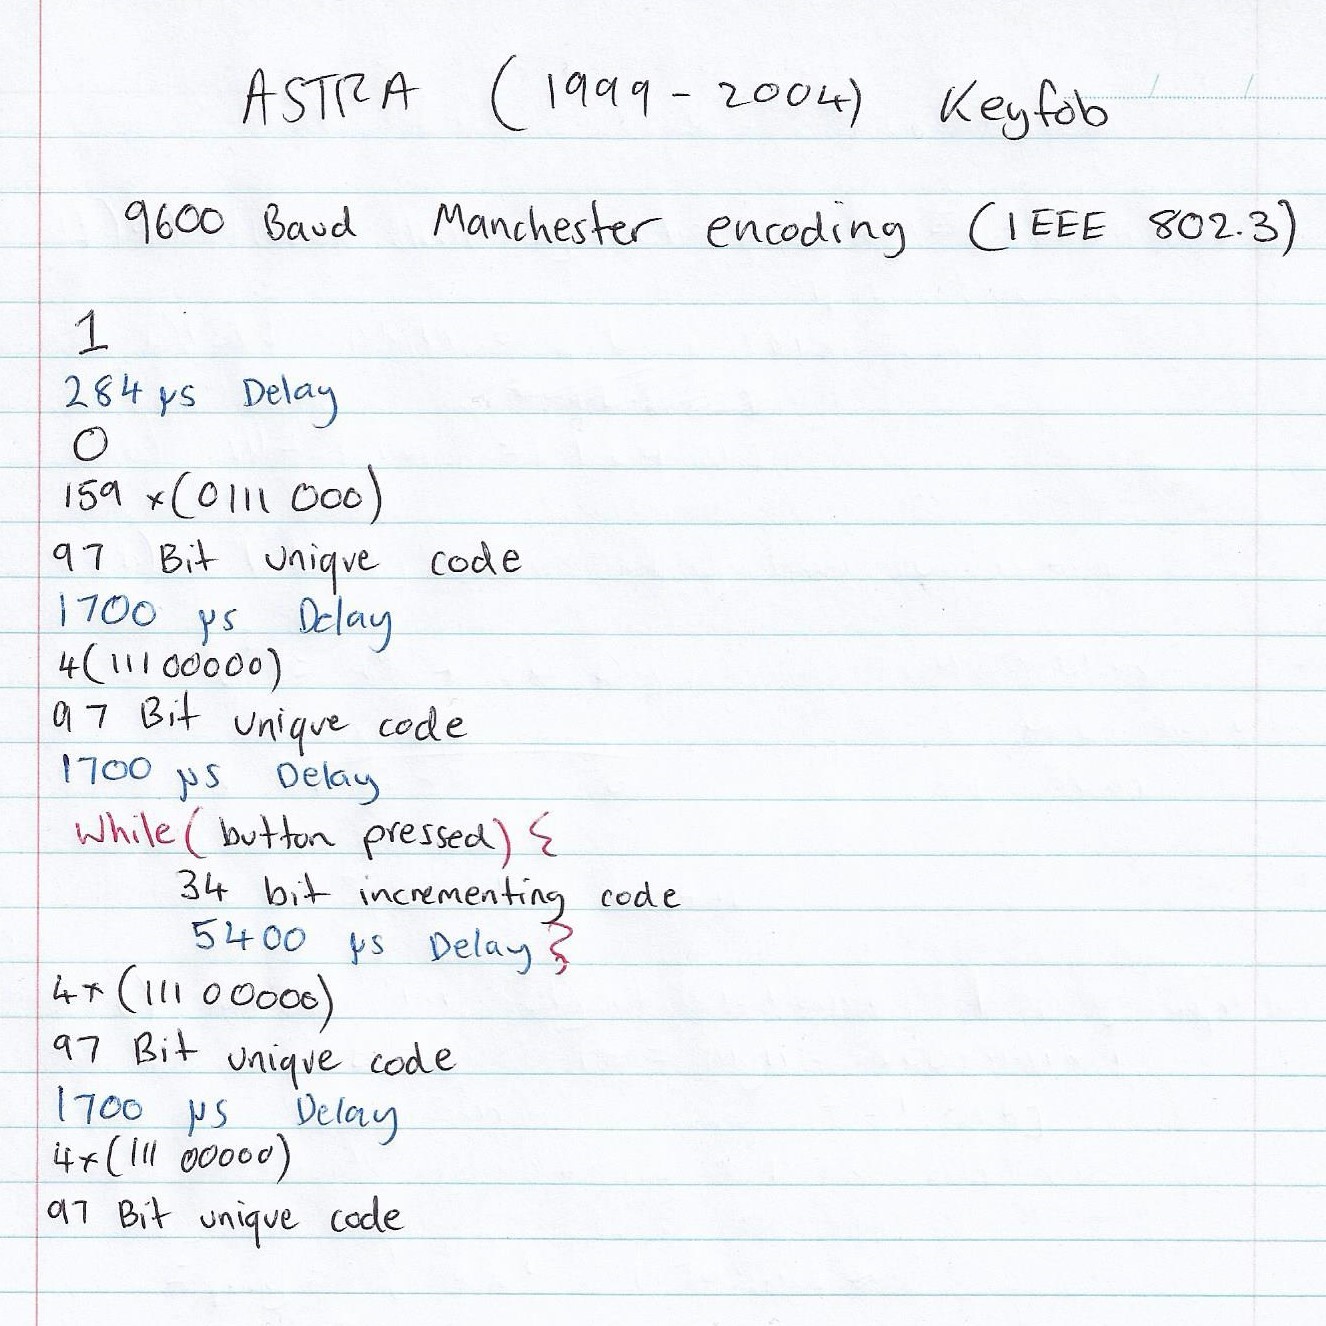 ASTRA (1999 - 2004) Keyfob
9600 Baud Manchester encoding (IEEE 802.3)
1
284 µs Delay
0
159 ×(0111 000)
97 Bit unique code
1700 µs Delay
4(111 00000)
97 Bit unique code
1700 µs Delay
While( button pressed) {
34 bit incrementing code
5400 µs Delay }
4×(111 00000)
97 Bit unique code
1700 µs Delay
4×(111 00000)
97 Bit unique code